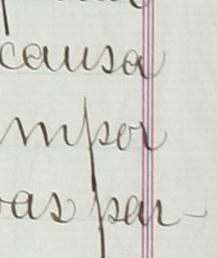 causa
mpor
as par-